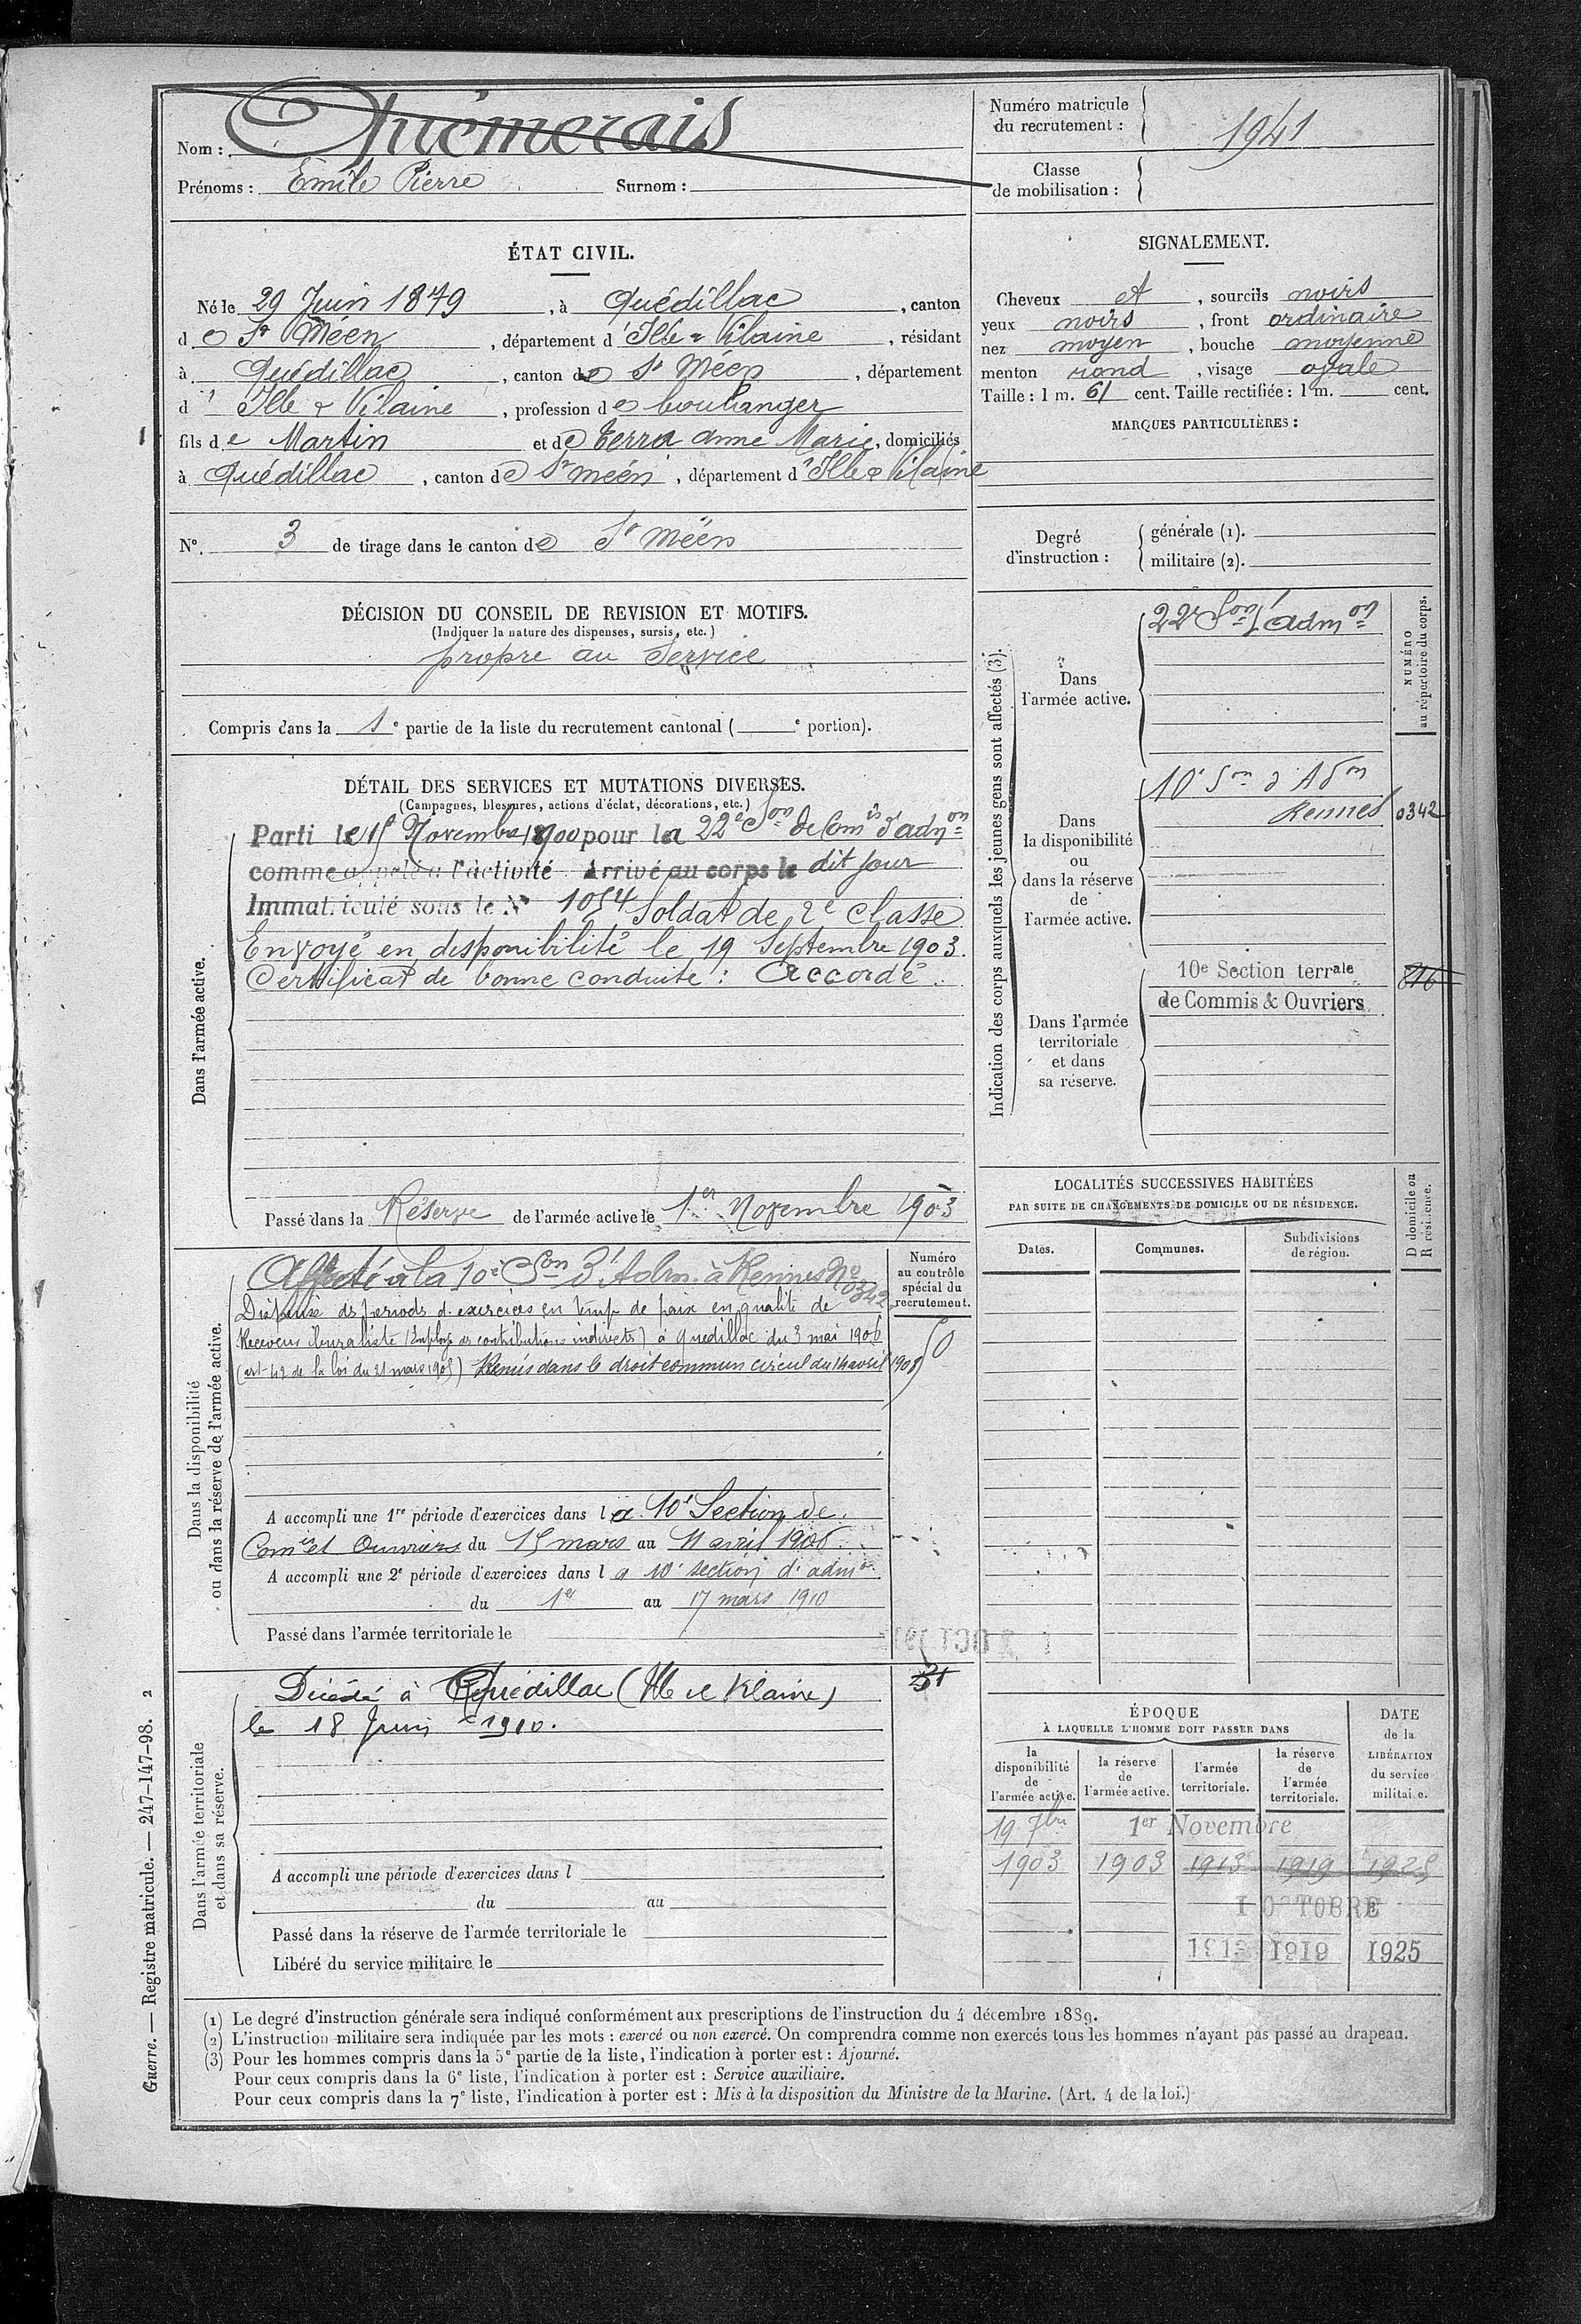 Nom : Quémerais
Prénoms : Emile Pierre Surnom :
Numéro matricule du recrutement : 1941
Classe de mobilisation :
ÉTAT CIVIL.
Né le 29 Juin 1879, à Quédillac, canton
de St Méen, département d'Ille & Vilaine, résidant
à Quédillac, canton de St Méen, département
d'Ille & Vilaine, profession de boulanger
fils de Martin et de Terra anne Marie, domiciliés
à Quédillac, canton de St méen, département d'Ille & Vilaine
N° 3 de tirage dans le canton de St Méen
DÉCISION DU CONSEIL DE REVISION ET MOTIFS.
(Indiquer la nature des dispenses, sursis, etc.)
propre au service
Compris dans la 1e partie de la liste du recrutement cantonal ( e portion).
DÉTAIL DES SERVICES ET MUTATIONS DIVERSES.
(Campagnes, blessures, actions d'éclat, décorations, etc.)
Dans l'armée active.
Parti le 15 Novembre 1900 pour la 22e Son de Comis d'admon
comme appelé à l'activité Arrivé au corps le dit jour
Immatriculé sous le N° 1054 Soldat de 2e classe
Envoyé en disponibilité le 19 Septembre 1903.
Certificat de bonne conduite : Accordé.
Passé dans la Réserve de l'armée active le 1er Novembre 1903
Dans la disponibilité
ou dans la réserve de l'armée active.
Numéro
au contrôle
spécial du
recrutement.
Affecté à la 10e Son d'Adm. à Rennes No 0342
Dispensé des périods d'exercices en temps de paix en qualité de
Receveur buraliste (Employé des contributions indirects) à Quedillac du 3 mai 1906
(art 42 de la loi du 21 mars 1905) Remis dans le droit commun circul du 14 avril 1908
50
A accompli une 1re période d'exercices dans la 10e Section de
Comis et Ouvriers du 15 mars au 11 avril 1906
A accompli une 2e période d'exercices dans la 10e section d'admon
du 1er au 17 mars 1910
Passé dans l'armée territoriale le
Dans l'armée territoriale
et dans sa réserve.
Décédé à Quédillac (Ille et Vilaine)
le 18 Juin 1910.
31
A accompli une période d'exercices dans l
du au
Passé dans la réserve de l'armée territoriale le
Libéré du service militaire le
SIGNALEMENT.
Cheveux et, sourcils noirs
yeux noirs, front ordinaire
nez moyen, bouche moyenne
menton rond, visage ovale
Taille : 1 m. 61 cent. Taille rectifiée : 1 m. cent.
MARQUES PARTICULIÈRES :
Degré d'instruction :
générale (1).
militaire (2).
Indication des corps auxquels les jeunes gens sont affectés (3).
NUMÉRO
au répertoire du corps.
Dans
l'armée active.
22e Son d'admon
Dans
la disponibilité
ou
dans la réserve
de
l'armée active.
10e Son d'Adon
Rennes 0342
Dans l'armée
territoriale
et dans
sa réserve.
10e Section terrale 816
de Commis & Ouvriers
LOCALITÉS SUCCESSIVES HABITÉES
PAR SUITE DE CHANGEMENTS DE DOMICILE OU DE RÉSIDENCE.
D domicile ou
R résidence.
Dates. Communes. Subdivisions de région.
ÉPOQUE
À LAQUELLE L'HOMME DOIT PASSER DANS
la disponibilité de l'armée active.
la réserve de l'armée active.
l'armée territoriale.
la réserve de l'armée territoriale.
DATE de la LIBÉRATION du service militaire.
19 7bre 1er Novembre
1903 1903 1913 1919 1925
1 OCTOBRE
1913 1919 1925
(1) Le degré d'instruction générale sera indiqué conformément aux prescriptions de l'instruction du 4 décembre 1889.
(2) L'instruction militaire sera indiquée par les mots : exercé ou non exercé. On comprendra comme non exercés tous les hommes n'ayant pas passé au drapeau.
(3) Pour les hommes compris dans la 5e partie de la liste, l'indication à porter est : Ajourné.
Pour ceux compris dans la 6e liste, l'indication à porter est : Service auxiliaire.
Pour ceux compris dans la 7e liste, l'indication à porter est : Mis à la disposition du Ministre de la Marine. (Art. 4 de la loi.)
Guerre. — Registre matricule. — 247-147-98. 2